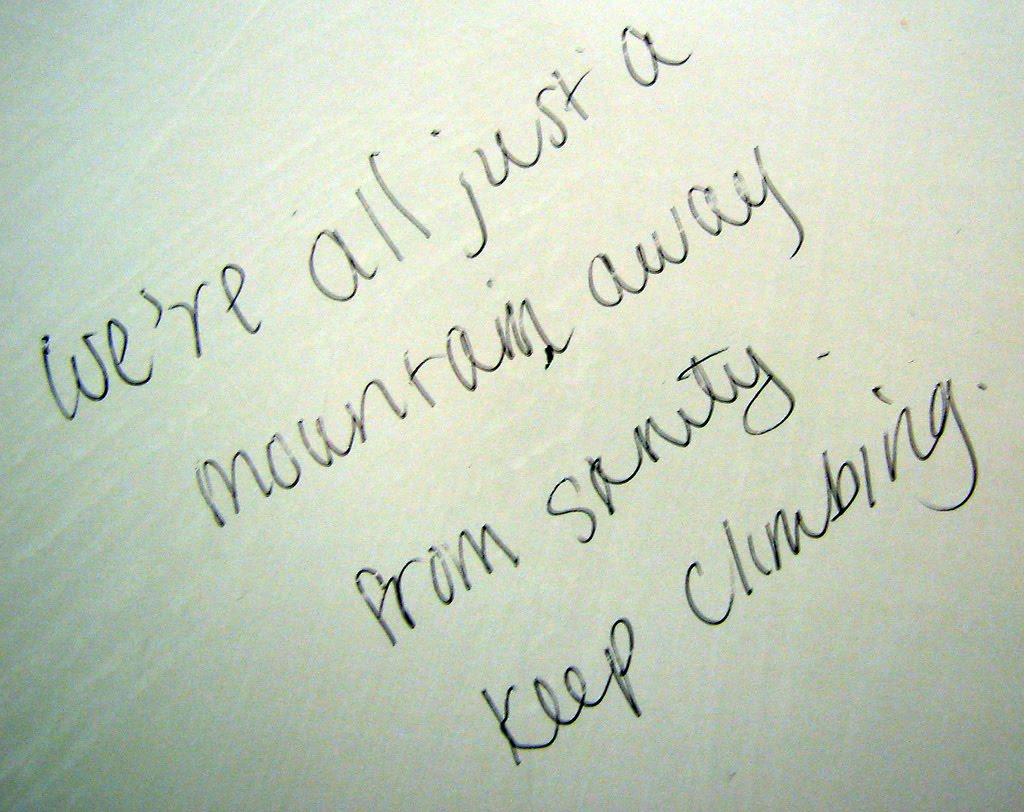 we're all just a
mountain away
from sanity.
keep climbing.